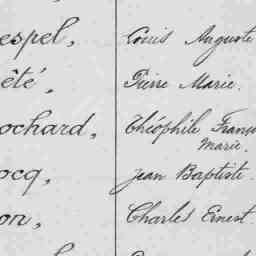 espel, Louis Auguste
êté, Pierre Marie.
ochard, Théophile Franço
Marie.
ocq, Jean Baptiste.
on, Charles Ernest